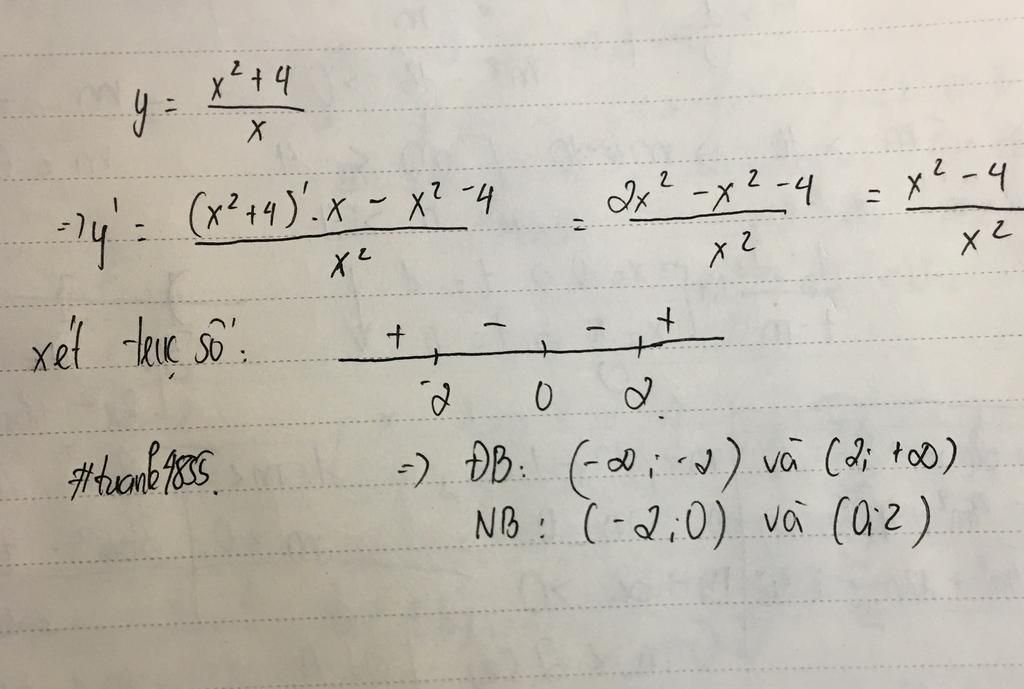 y = (x² + 4) / x
=> y' = ((x² + 4)' . x - x² - 4) / x² = (2x² - x² - 4) / x² = (x² - 4) / x²
xét trục số:
+ - - +
-2 0 2
#tuanh9835. => ĐB: (-∞; -2) và (2; +∞)
NB: (-2; 0) và (0; 2)